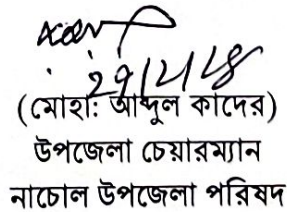 (মোহা: আব্দুল কাদের)
উপজেলা চেয়ারম্যান
নাচোল উপজেলা পরিষদ